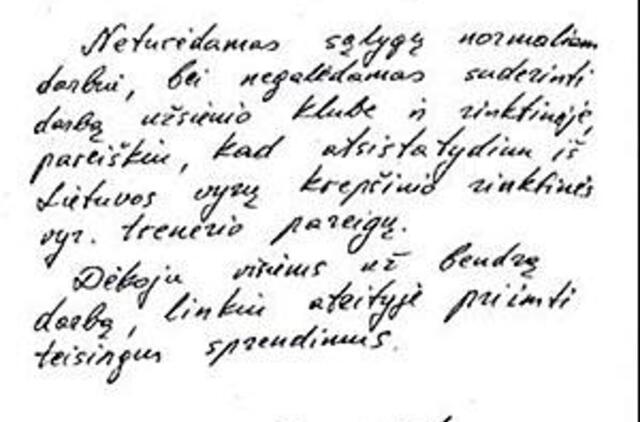 Neturėdamas sąlygų normaliam
darbui, bei negalėdamas suderinti
darbą užsienio klube ir rinktinėje,
pareiškiu, kad atsistatydinu iš
Lietuvos vyrų krepšinio rinktinės
vyr. trenerio pareigų.
Dėkoju visiems už bendrą
darbą, linkiu ateityje priimti
teisingus sprendimus.